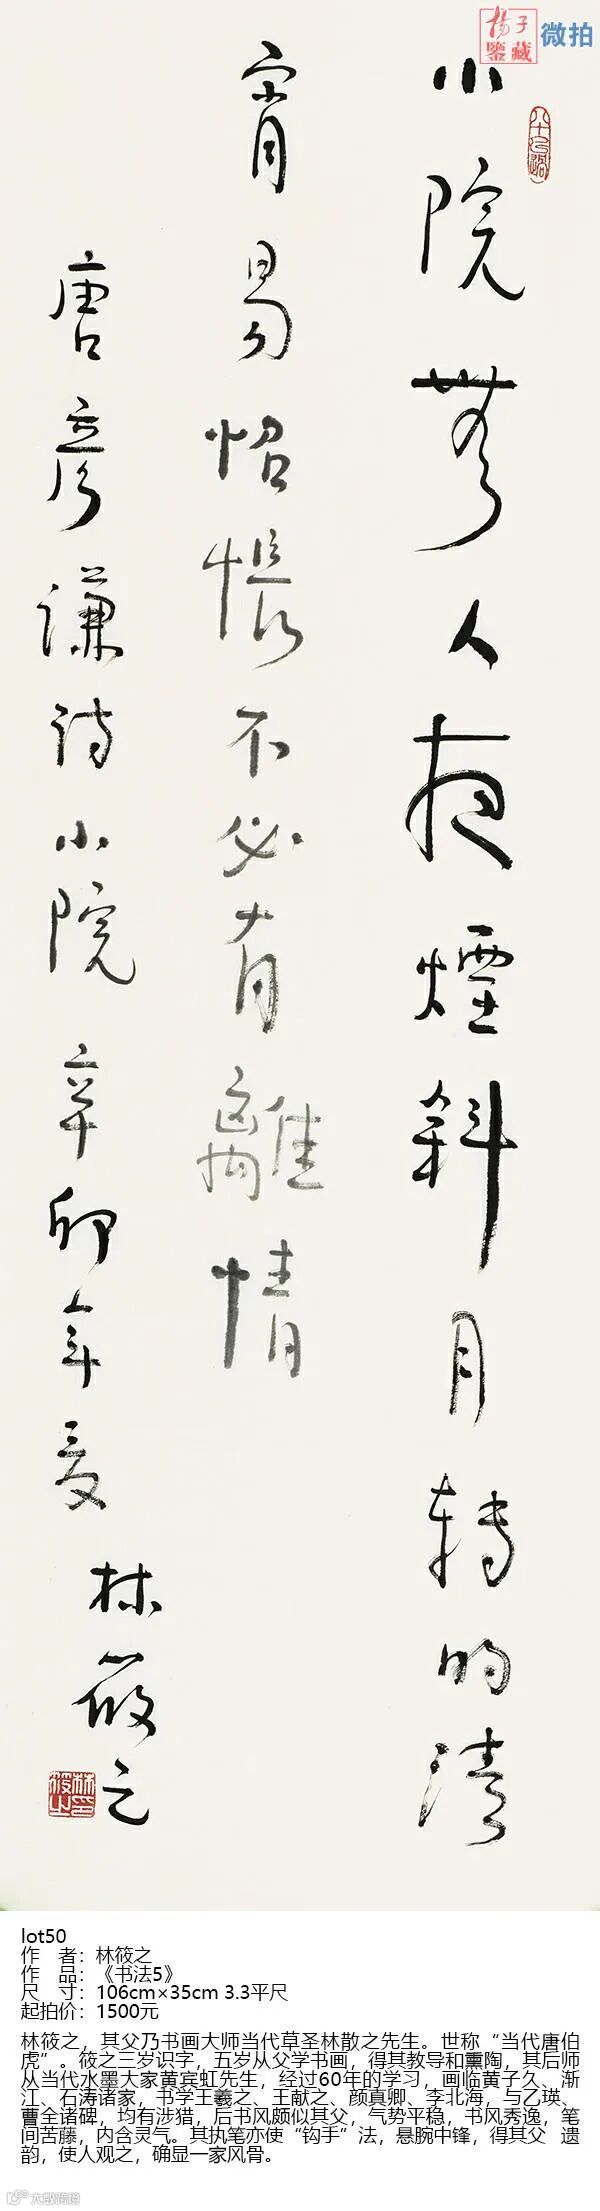 楊子
鑒藏
微拍
小院無人夜煙斜月轉明清
宵易怊悵不必有離情
唐彦谦诗小院辛卯年夏
林筱之
lot50
作　者：林筱之
作　品：《书法5》
尺　寸：106cm×35cm 3.3平尺
起拍价：1500元
林筱之，其父乃书画大师当代草圣林散之先生。世称“当代唐伯
虎”。筱之三岁识字，五岁从父学书画，得其教导和熏陶，其后师
从当代水墨大家黄宾虹先生，经过60年的学习，画临黄子久、渐
江、石涛诸家，书学王羲之、王献之、颜真卿、李北海，与乙瑛、
曹全诸碑，均有涉猎，后书风颇似其父，气势平稳，书风秀逸，笔
间苦藤，内含灵气。其执笔亦使“钩手”法，悬腕中锋，得其父 遗
韵，使人观之，确显一家风骨。
大叔跨境